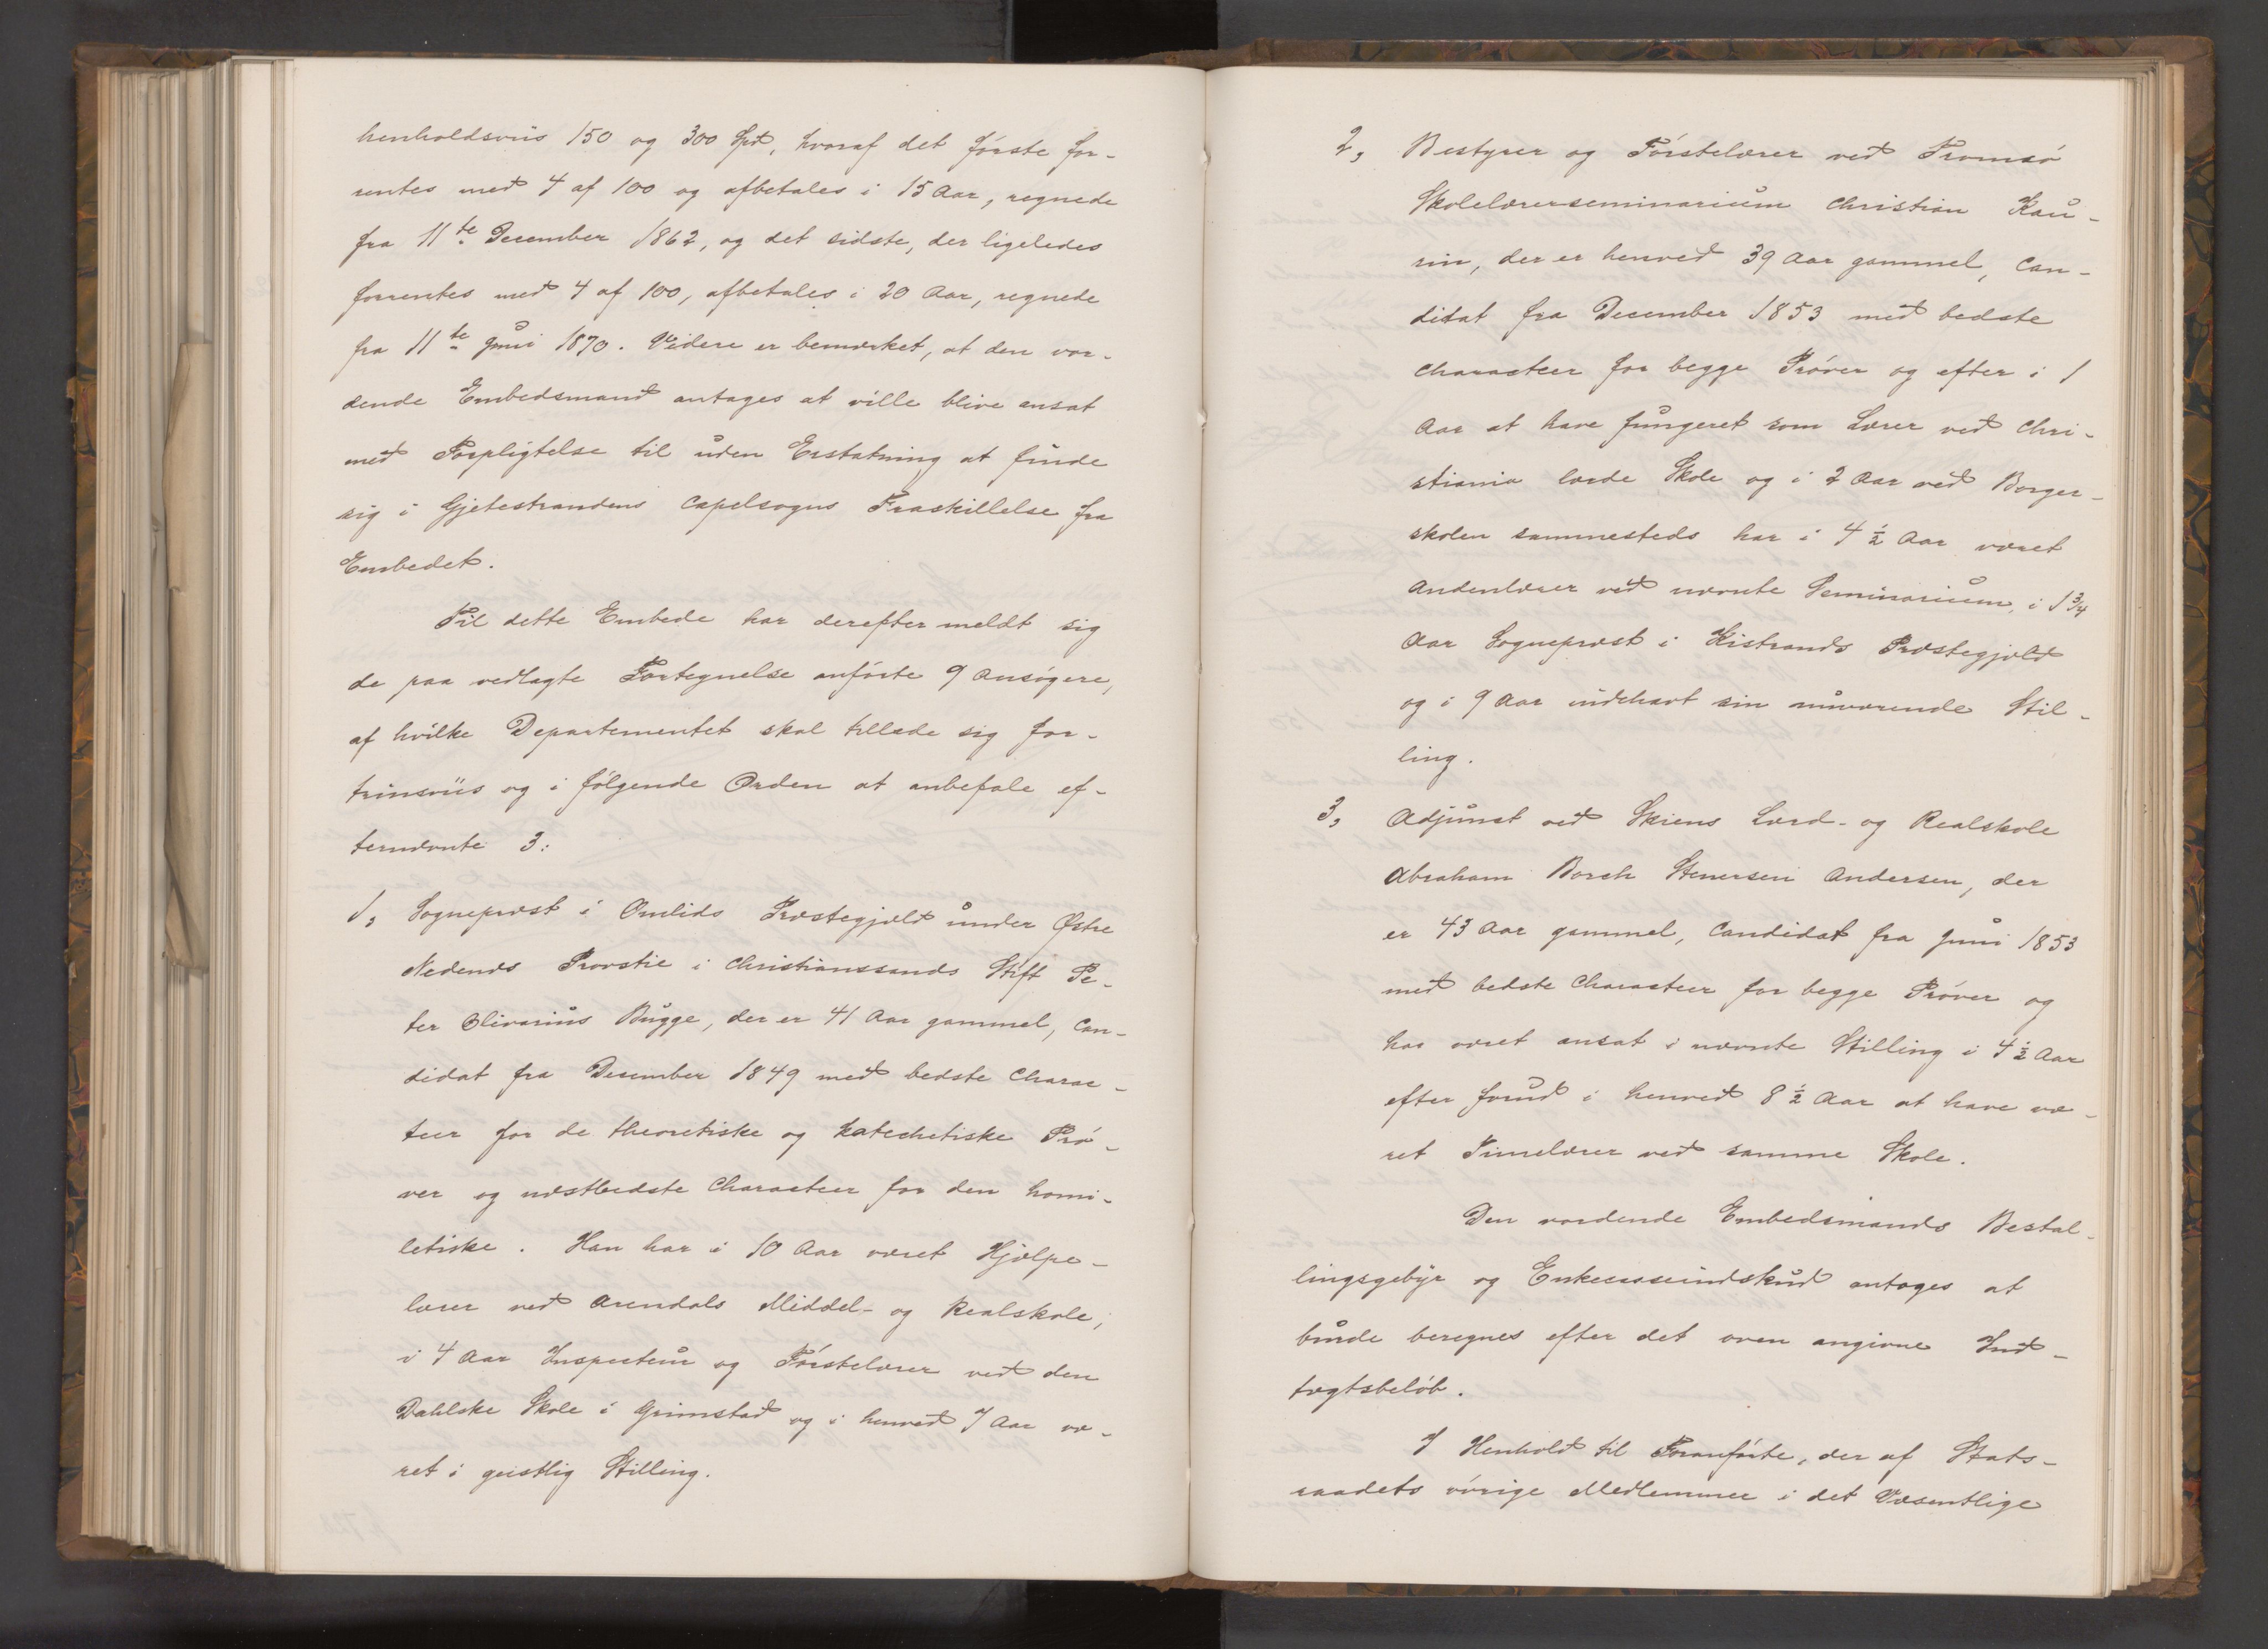 henholdsviis 150 og 300 Spd, hvoraf det første for-
rentes med 4 af 100 og afbetales i 15 Aar, regnede
fra 11te December 1862, og det sidste, der ligeledes
forrentes med 4 af 100, afbetales i 20 Aar, regnede
fra 11te Juni 1870. Videre er bemærket, at den vor-
dende Embedsmand antages at ville blive ansat
med Forpligtelse til uden Erstatning at finde
sig i Gjetestrandens Capelsogns Fraskillelse fra
Embedet.
Til dette Embede har derefter meldt sig
de paa vedlagte Fortegnelse anførte 9 Ansøgere,
af hvilke Departementet skal tillade sig for-
trinsviis og i følgende Orden at anbefale ef-
ternævnte 3:
1, Sognepræst i Omlids Præstegjæld under Østre
Nedenes Provstie i Christianssands Stift Pe-
ter Olivarius Bugge, der er 41 Aar gammel, Can-
didat fra December 1849 med bedste Charac-
teer for de theoretiske og katechetiske Prø-
ver og næstbedste Characteer for den homi-
letiske. Han har i 10 Aar været Hjælpe-
lærer ved Arendals Middel- og Realskole,
i 4 Aar Inspecteur og Førstelærer ved den
Dahlske Skole i Grimstad og i henved 7 Aar væ-
ret i geistlig Stilling.
2, Bestyrer og Førstelærer ved Tromsø
Skolelærerseminarium Christian Kau-
rin, der er henved 39 Aar gammel, Can-
didat fra December 1853 med bedste
Characteer for begge Prøver og efter i 1
Aar at have fungeret som Lærer ved Chri-
stiania lærde Skole og i 2 Aar ved Borger-
skolen sammesteds har i 4 1/2 Aar været
Andenlærer ved nævnte Seminarium, i 1 3/4
Aar Sognepræst i Kistrands Præstegjæld
og i 9 Aar indehavt sin nuværende Stil-
ling.
3, Adjunct ved Skiens Lærd- og Realskole
Abraham Borch Stenersen Andersen, der
er 43 Aar gammel, Candidat fra Juni 1853
med bedste Characteer for begge Prøver og
har været ansat i nævnte Stilling i 4 1/2 Aar
efter forud i henved 8 1/2 Aar at have væ-
ret Timelærer ved samme Skole.
Den vordende Embedsmands Bestal-
lingsgebyr og Enkecasseindskud antages at
burde beregnes efter det oven angivne Ind-
tægtsbeløb.
I Henhold til Foranførte, der af Stats-
raadets øvrige Medlemmer i det Væsentlige